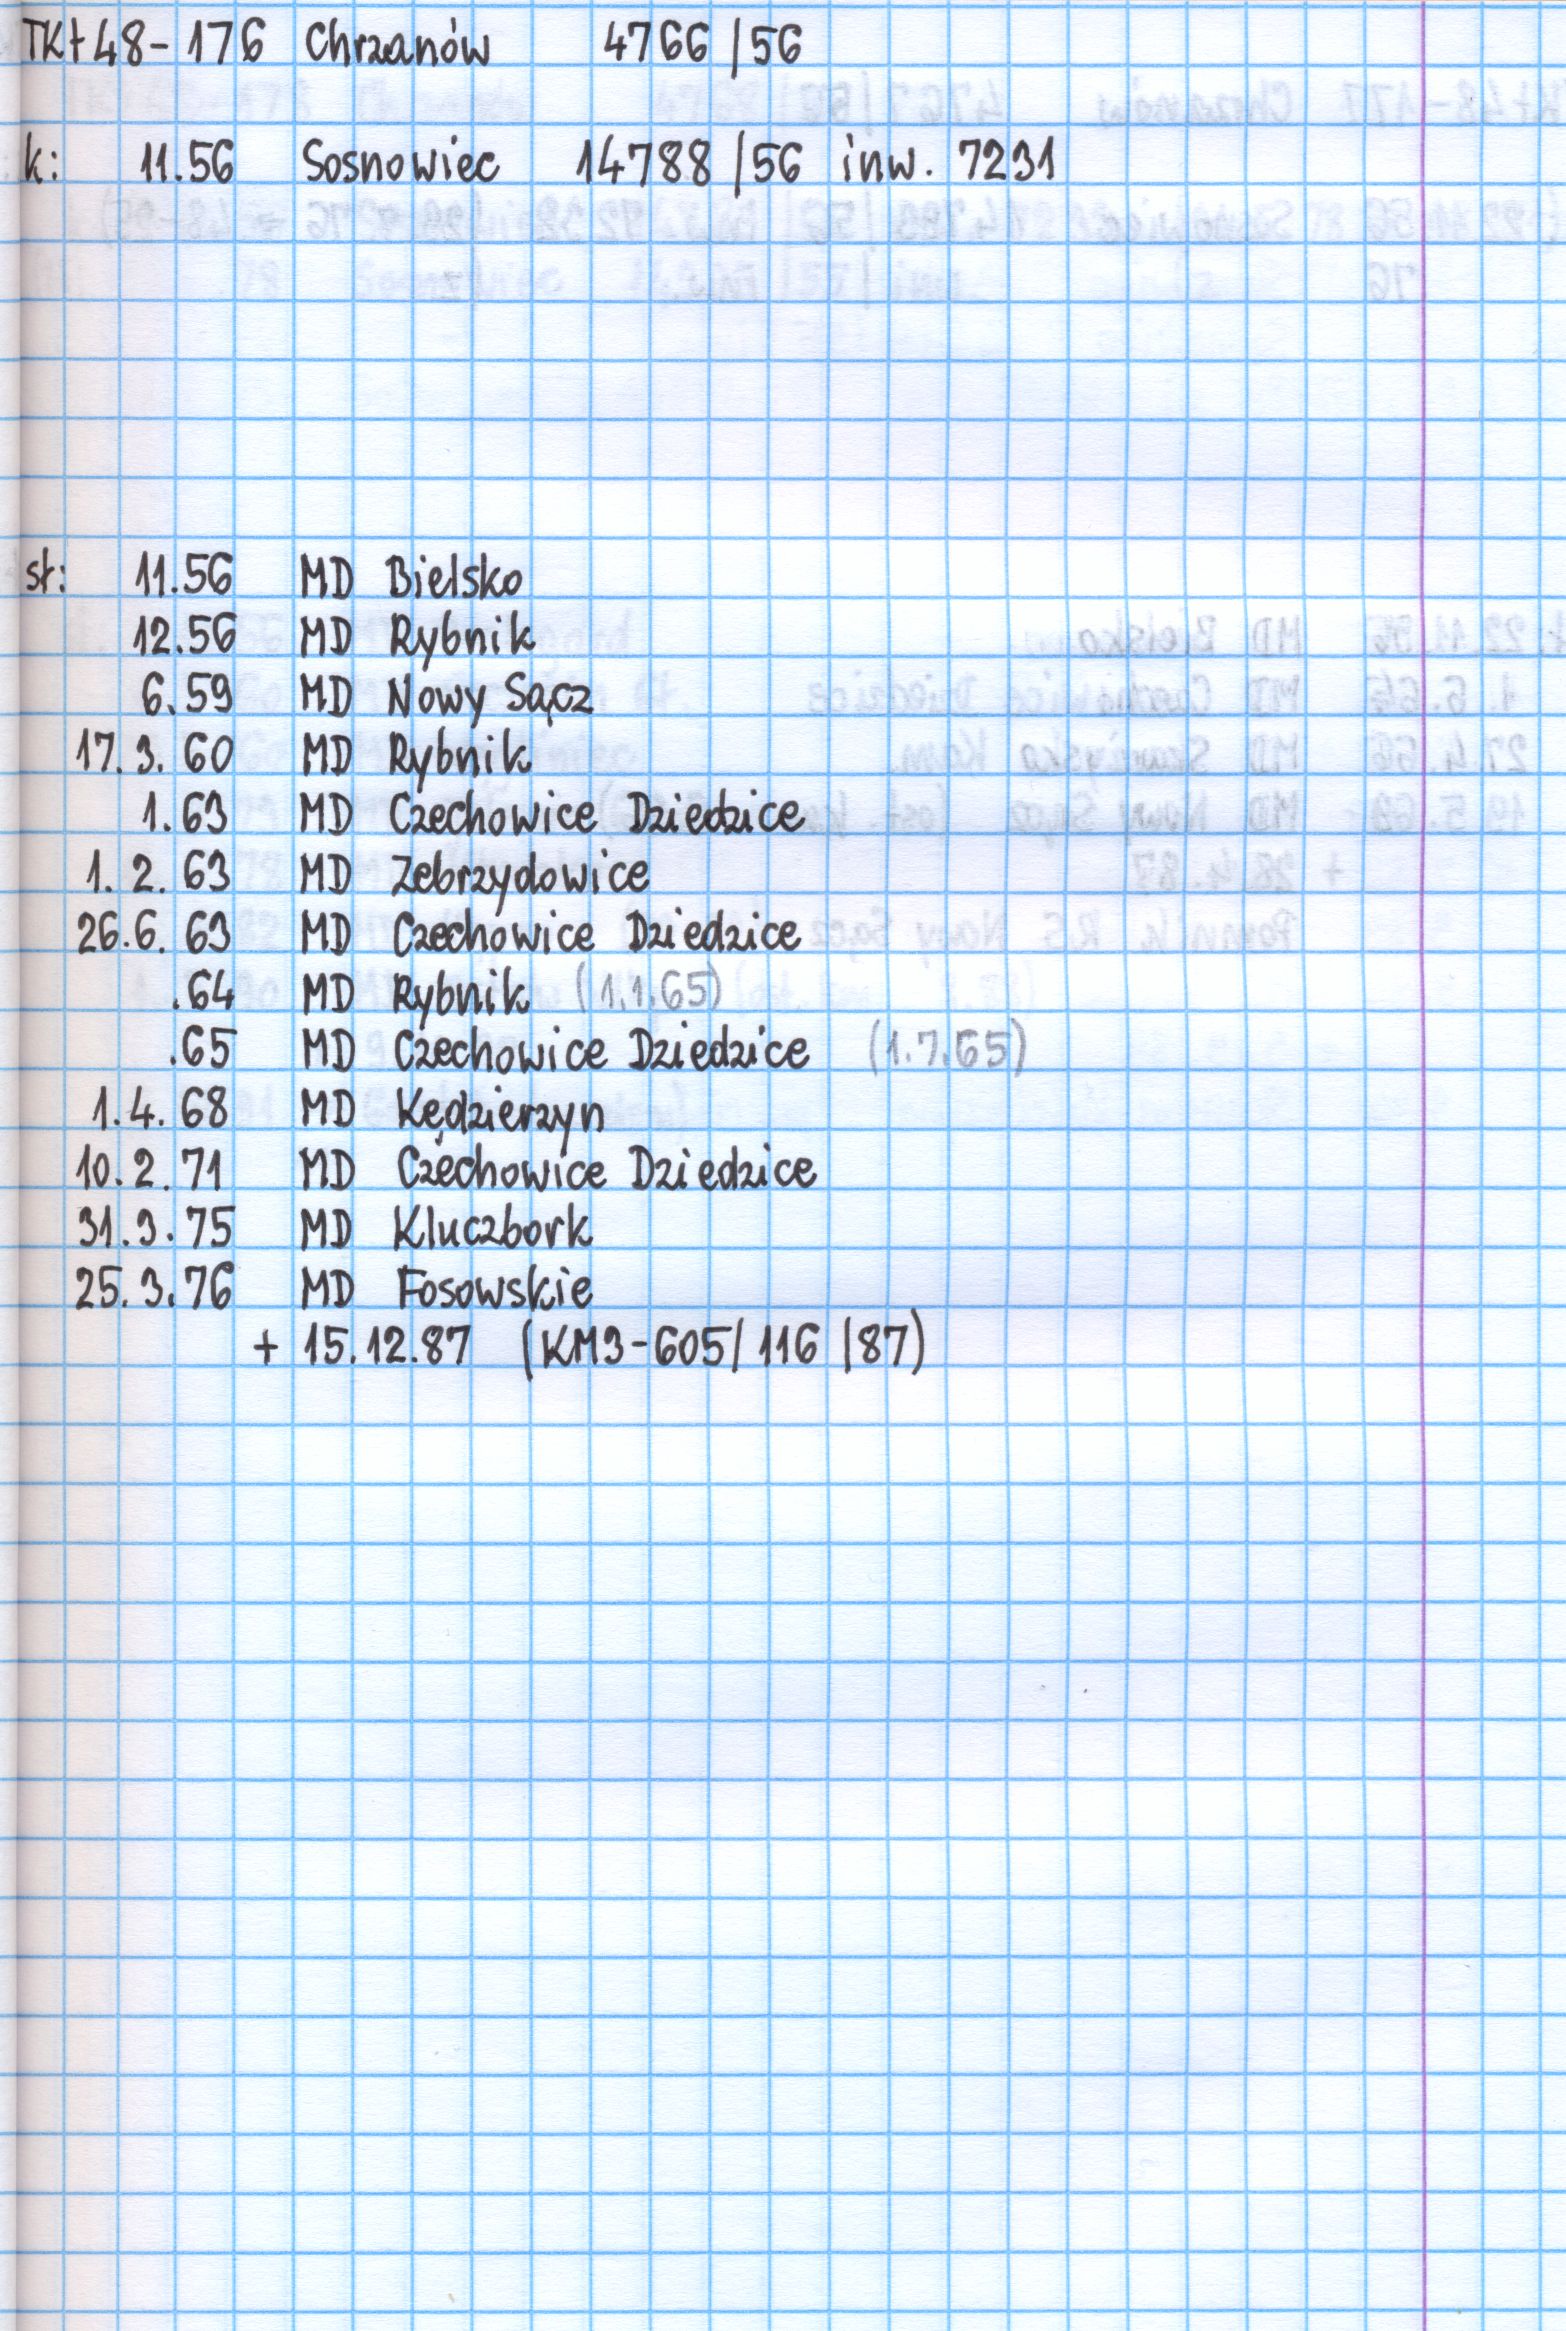 TKt48-176 Chrzanów 4766/56
k: 11.56 Sosnowiec 14788/56 inw. 7231
st: 11.56 MD Bielsko
12.56 MD Rybnik
6.59 MD Nowy Sącz
17.3.60 MD Rybnik
1.63 MD Czechowice Dziedzice
1.2.63 MD Zebrzydowice
26.6.63 MD Czechowice Dziedzice
.64 MD Rybnik (1.1.65)
.65 MD Czechowice Dziedzice (1.7.65)
1.4.68 MD Kędzierzyn
10.2.71 MD Czechowice Dziedzice
31.3.75 MD Kluczbork
25.3.76 MD Fosowskie
+ 15.12.87 (KM3-605/116/87)